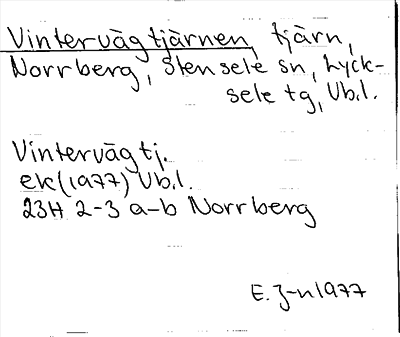 Vintervägtjärnen, tjärn,
Norrberg, Stensele sn, Lyck-
sele tg, Vb.l.
Vintervägtj.
ek(1977) Vb.l.
23H 2-3 a-b Norrberg
E. J-n 1977